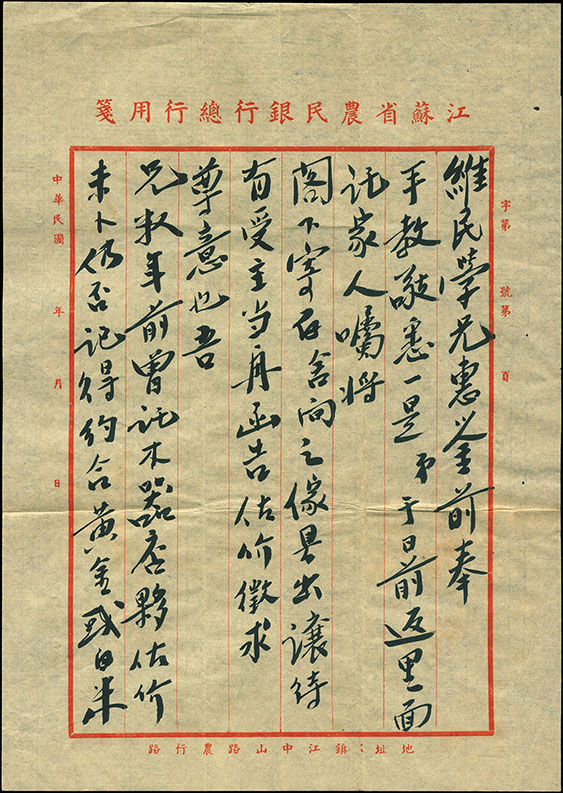 江蘇省農民銀行總行用箋
字第　號第　頁
維民學兄惠鑒前奉
手教敬悉一是弟于日前返里面
託家人囑將
閣下寄存舍間之傢具出讓待
有受主当再函告估价徵求
尊意也吾
兄数年前曾託木器店夥估价
未卜仍否記得約合黃金或白米
中華民國　年　月　日
地址：鎮江中山路農行路